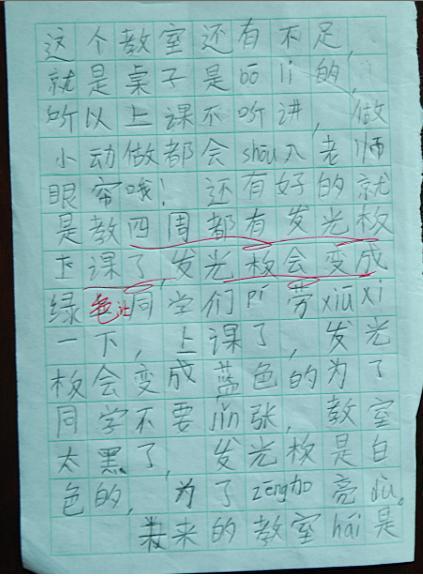 这个教室还有不足，
就是桌子是bō li的，
所以上课不听讲，做
小动做都会shōu入老师
眼帘哦！还有好的就
是教四周都有发光板
下课了，发光板会变成
绿色让同学们pí劳xiūxi
一下，上课了，发光
板会变成蓝色的为了
同学不要jǐn张，教室
太黑了，发光板是白
色的，为了zēng加亮dù。
未来的教室hái是